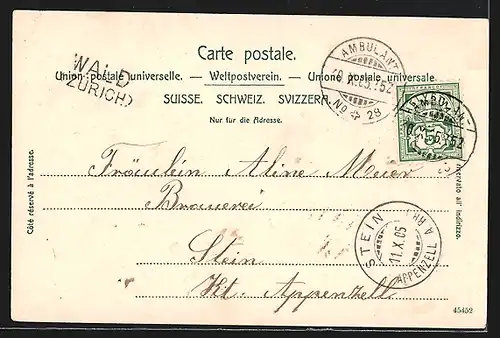 Carte postale.
Union postale universelle. — Weltpostverein. — Unione postale universale.
SUISSE. SCHWEIZ. SVIZZERA.
Nur für die Adresse.
WALD
(ZÜRICH)
AMBULANT
10.X.05.152
No 29
AMBULANT
5
152
Fräulein Aline Meier
Brauerei
Stein
Kt. Appenzell
STEIN
11.X.05
APPENZELL A.RH.
Côté réservé à l'adresse.
all' indirizzo.
45452